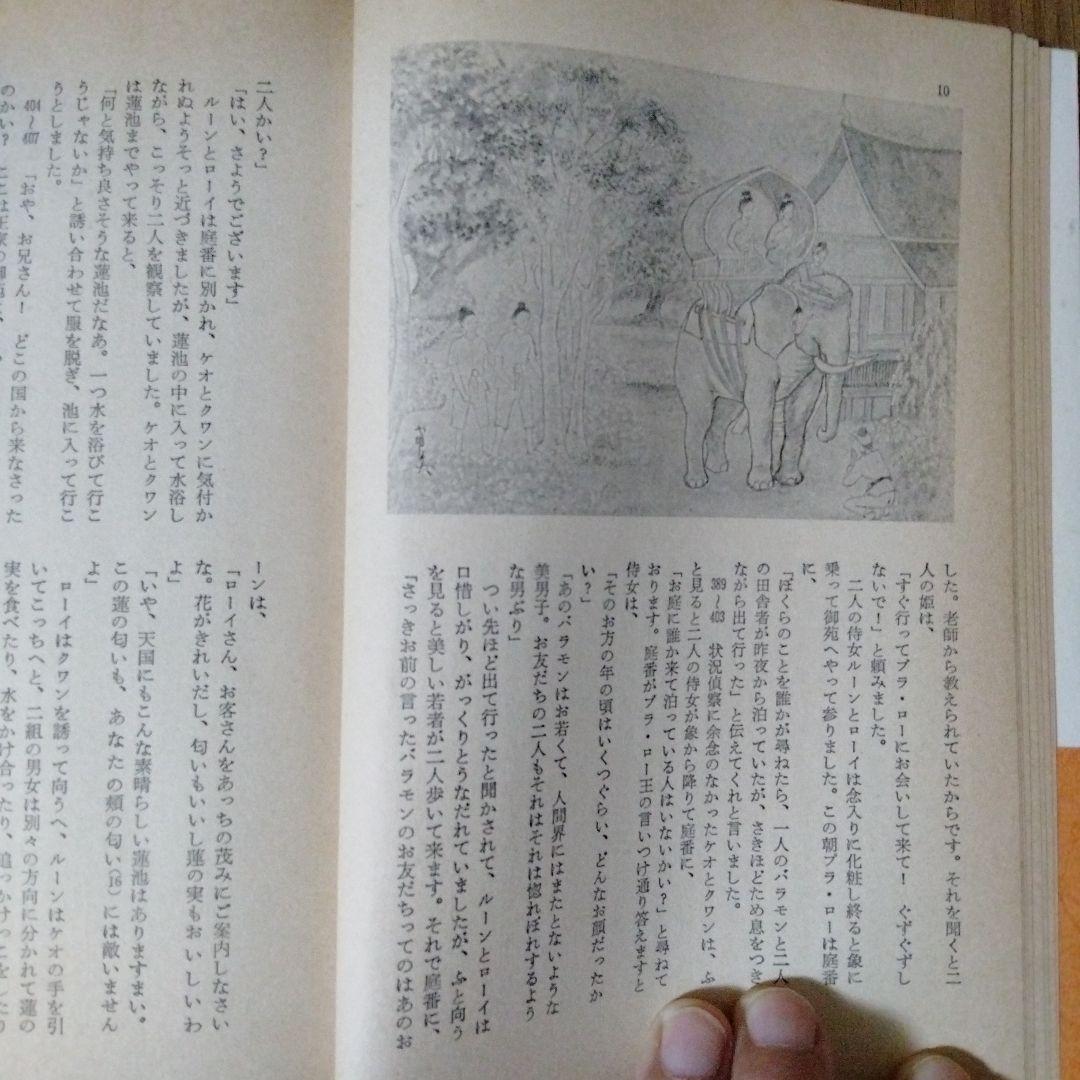 10
した。老師から教えられていたからです。それを聞くと二
人の姫は、
「すぐ行ってプラ・ローにお会いして来て！　ぐずぐずし
ないで！」と頼みました。
二人の侍女ルーンとローイは念入りに化粧し終ると象に
乗って御苑へやって参りました。この朝プラ・ローは庭番
に、
「ぼくらのことを誰かが尋ねたら、一人のバラモンと二人
の田舎者が昨夜から泊っていたが、さきほどため息をつき
ながら出て行った」と伝えてくれと言いました。
389～403　状況偵察に余念のなかったケオとクワンは、ふ
と見ると二人の侍女が象から降りて庭番に、
「お庭に誰か来て泊っている人はいないかい？」と尋ねて
おります。庭番がプラ・ロー王の言いつけ通り答えますと
侍女は、
「そのお方の年の頃はいくつぐらい、どんなお顔だったか
い？」
「あのバラモンはお若くて、人間界にはまたとないような
美男子。お友だちの二人もそれはそれは惚れぼれするよう
な男ぶり」
つい先ほど出て行ったと聞かされて、ルーンとローイは
口惜しがり、がっくりとうなだれていましたが、ふと向う
を見ると美しい若者が二人歩いて来ます。それで庭番に、
「さっきお前の言ったバラモンのお友だちってのはあのお
二人かい？」
「はい、さようでございます」
ルーンとローイは庭番に別かれ、ケオとクワンに気付か
れぬようそっと近づきましたが、蓮池の中に入って水浴し
ながら、こっそり二人を観察していました。ケオとクワン
は蓮池までやって来ると、
「何と気持ち良さそうな蓮池だなあ。一つ水を浴びて行こ
うじゃないか」と誘い合わせて服を脱ぎ、池に入って行こ
うとしました。
404～407　「おや、お兄さん！　どこの国から来なさった
のかい？　ここは王家の御苑
ーンは、
「ローイさん、お客さんをあっちの茂みにご案内しなさい
な。花がきれいだし、匂いもいいし蓮の実もおいしいわ
よ」
「いや、天国にもこんな素晴らしい蓮池はありますまい。
この蓮の匂いも、あなたの頰の匂い（16）には敵いません
よ」
ローイはクワンを誘って向うへ、ルーンはケオの手を引
いてこっちへと、二組の男女は別々の方向に分かれて蓮の
実を食べたり、水をかけ合ったり、追っかけっこをしたり